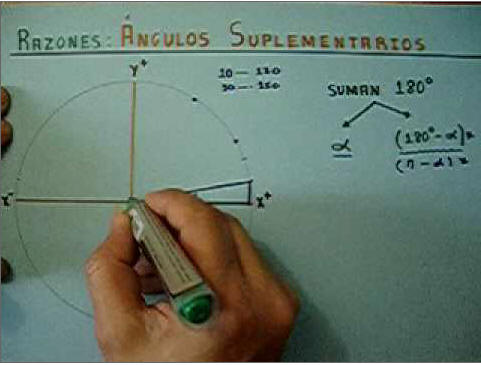 RAZONES: ÁNGULOS SUPLEMENTARIOS
Y+
10 — 170
30 — 150
SUMAN 180°
α
(180° - α)
(π - α)
X-
X+